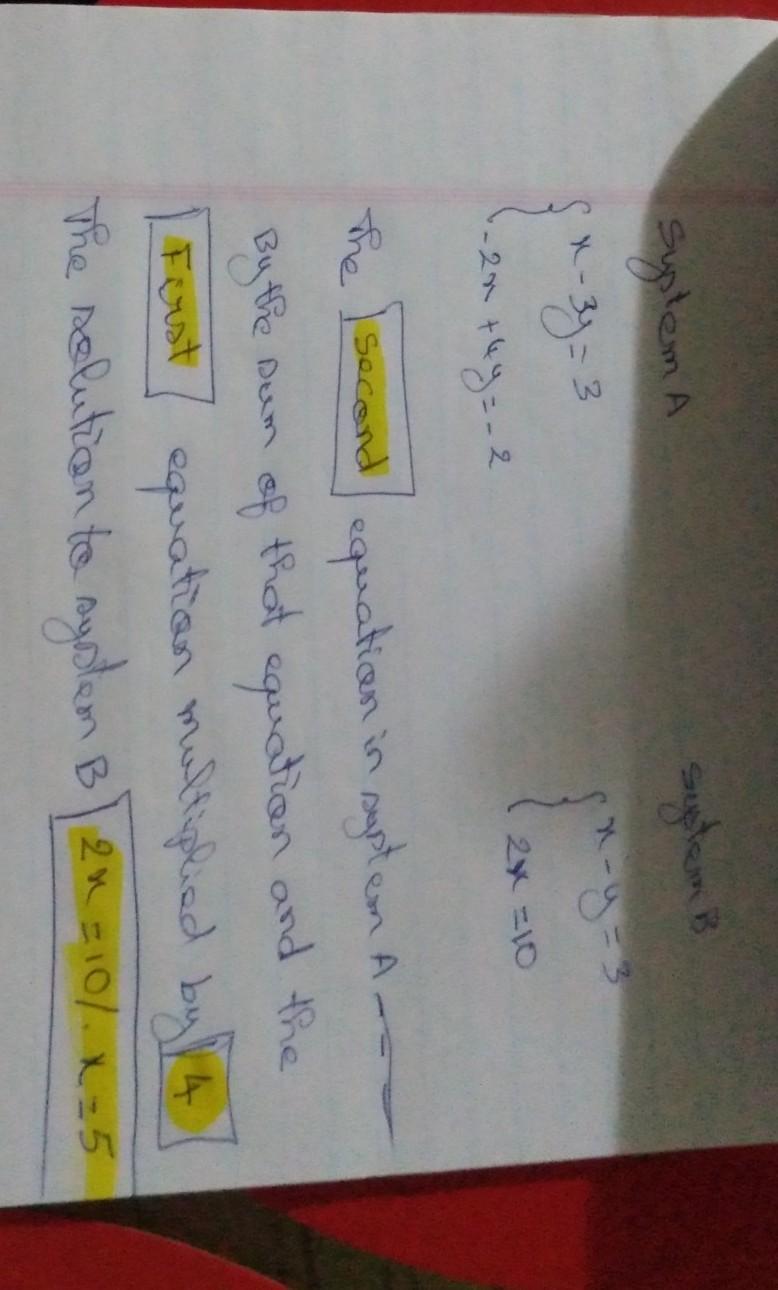 System A
System B
{ x - 3y = 3
{ x - y = 3
-2x + 4y = -2
2x = 10
The Second equation in system A ---
By the sum of that equation and the
First equation multiplied by 4
The solution to system B 2x = 10/. x = 5